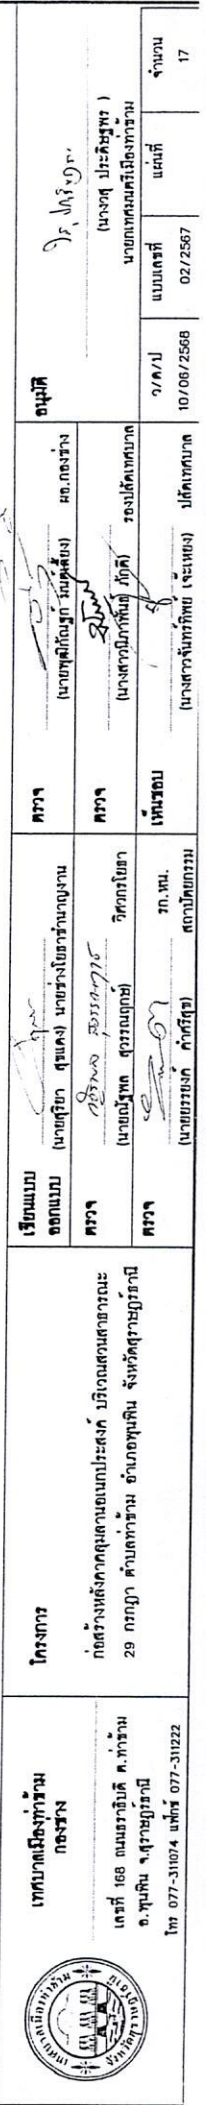 เทศบาลเมืองท่าข้าม
กองช่าง
เลขที่ 168 ถนนธราธิบดี ต.ท่าข้าม
อ.พุนพิน จ.สุราษฎร์ธานี
โทร 077-311074 แฟกซ์ 077-311222
โครงการ
ก่อสร้างหลังคาคลุมลานอเนกประสงค์ บริเวณสวนสาธารณะ
29 กรกฎา ตำบลท่าข้าม อำเภอพุนพิน จังหวัดสุราษฎร์ธานี
เขียนแบบ
ออกแบบ
(นายสุริยา สุขแดง) นายช่างโยธาชำนาญงาน
ตรวจ
วิศวกรโยธา
(นายณัฐพล สุวรรณฤกษ์)
ตรวจ
รก.หน.
(นายยรรยงค์ คำศรีสุข) สถาปัตยกรรม
ตรวจ
ผอ.กองช่าง
ตรวจ
รองปลัดเทศบาล
(นางสาวนิภาพันธ์ ภักดี)
เห็นชอบ
(นางสาวจันทร์ทิพย์ เจะเหยง) ปลัดเทศบาล
อนุมัติ
(นางวสุ ประดิษฐพร )
นายกเทศมนตรีเมืองท่าข้าม
ว/ด/ป แบบเลขที่ แผ่นที่ จำนวน
10/06/2568 02/2567 17